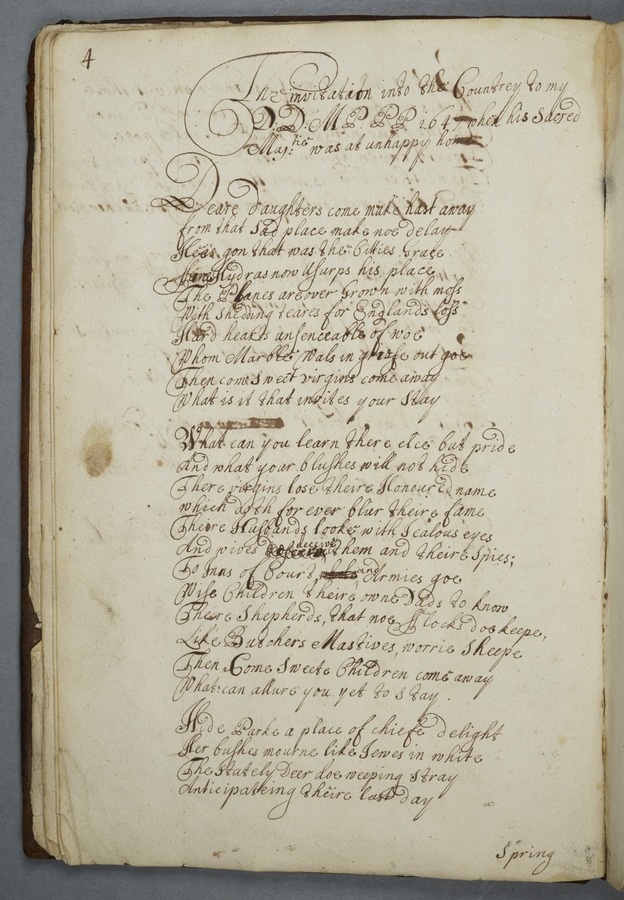 4
The invitation into the Countrey to my
D: D: M P: P P 1647 when his Sacred
Majtie was at unhappy home
Deare Daughters come make hast away
from that Sad place make noe delay
Hees gon that was the Citties Grace
Hydras now Usurps his place
The Planes are over Grown with moss
With sheding teares for Englands loss
Hard hearts unsenceable of woe
Whom Marble wals in griefe out goe
Then come Sweet virgins come away
What is it that invites your stay
What can you learn there elce but pride
And what your blushes will not hide
There virgins lose theire Honoured name
which doth for ever blur theire fame
There Husbands looke with Jealous eyes
And wives deceive them and theire Spies;
To Inns of Court and Armies goe
Wise Children theire owne Dads to know
There Shepherds, that noe Flocks doe keepe,
Like Butchers Mastives, worrie Sheepe
Then Come Sweete Children come away
What can allure you yet to stay.
Hide Parke a place of chiefe delight
Her bushes mourne like Jewes in white
The Stately Deer doe weeping stray
Anticipateing theire last day
Spring